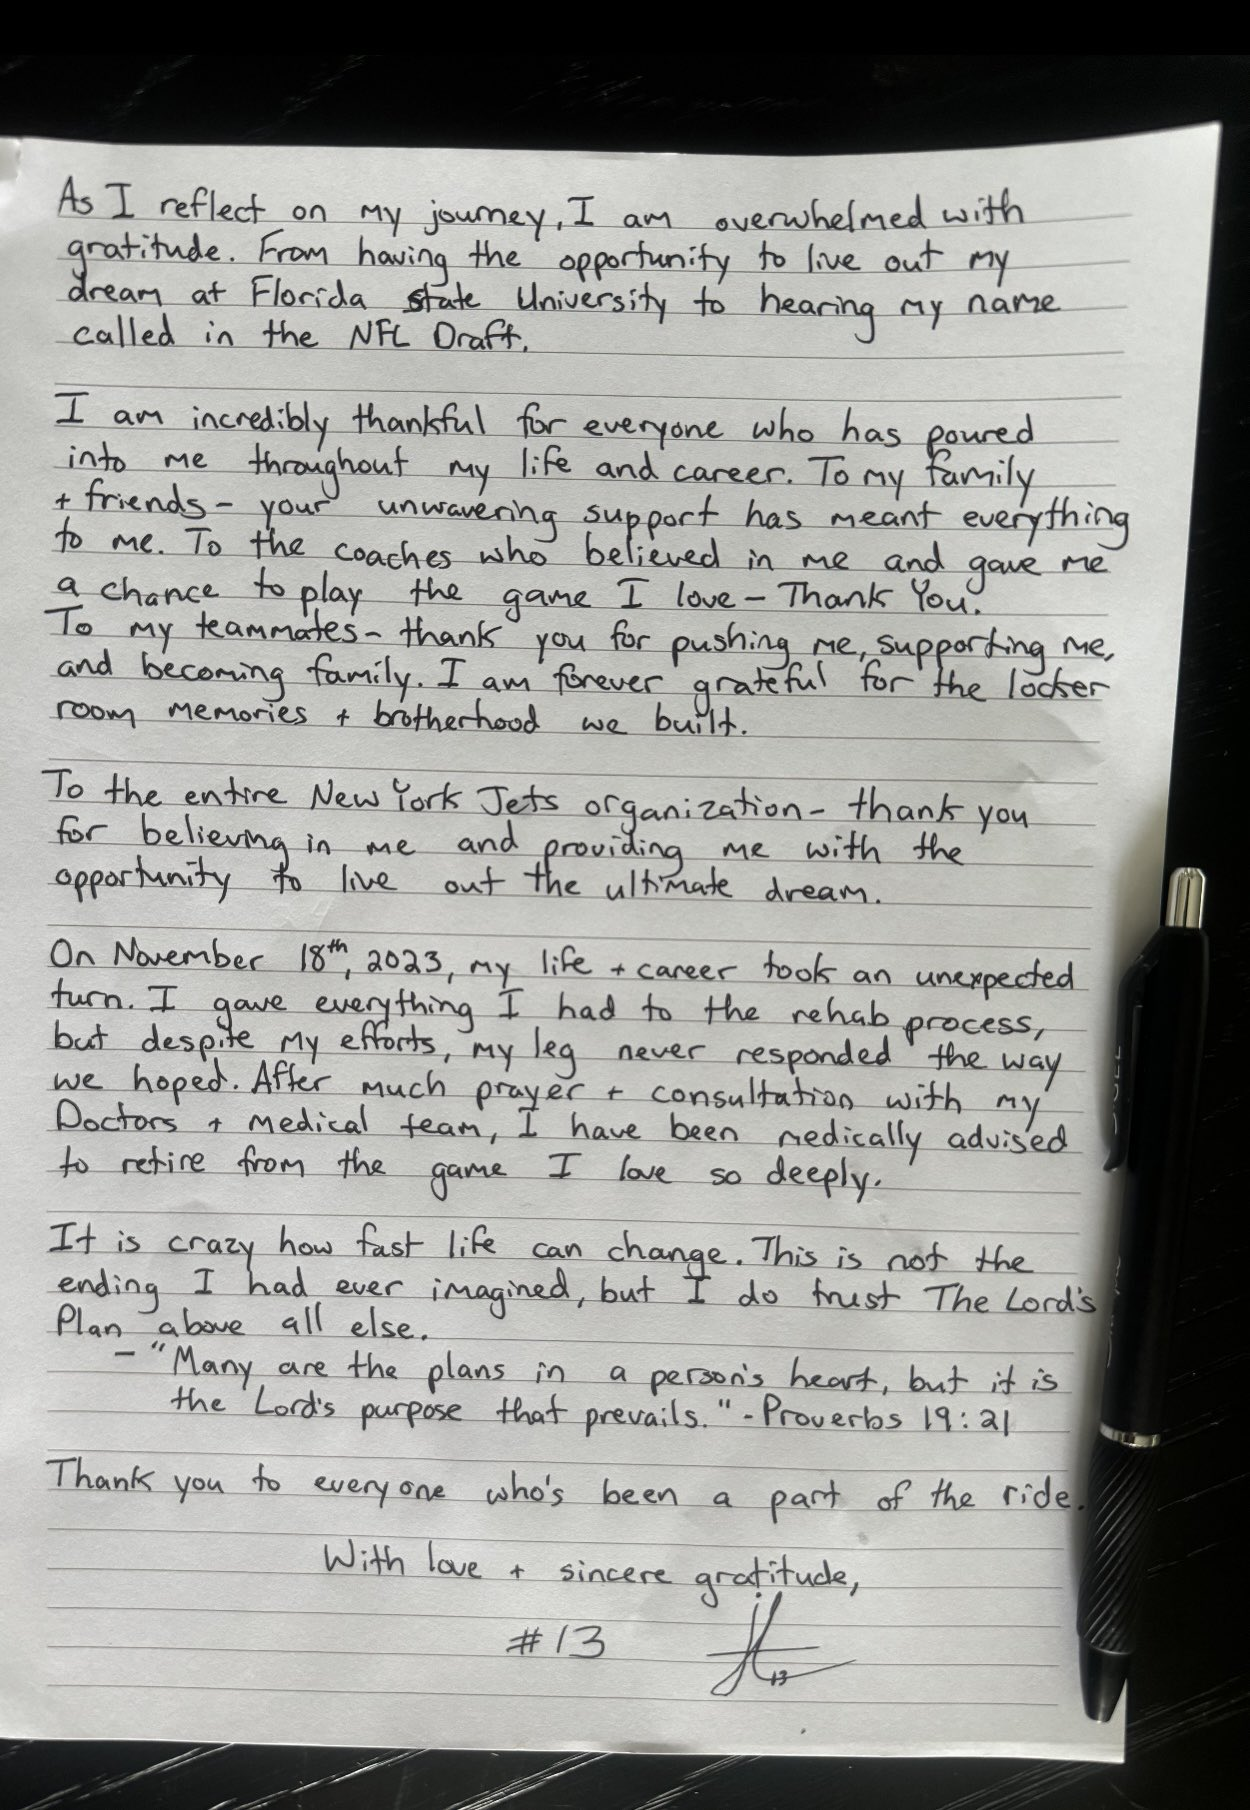 As I reflect on my journey, I am overwhelmed with
gratitude. From having the opportunity to live out my
dream at Florida state University to hearing my name
called in the NFL Draft.
I am incredibly thankful for everyone who has poured
into me throughout my life and career. To my family
+ friends - your unwavering support has meant everything
to me. To the coaches who believed in me and gave me
a chance to play the game I love - Thank You.
To my teammates - thank you for pushing me, supporting me,
and becoming family. I am forever grateful for the locker
room memories + brotherhood we built.
To the entire New York Jets organization - thank you
for believing in me and providing me with the
opportunity to live out the ultimate dream.
On November 18th, 2023, my life + career took an unexpected
turn. I gave everything I had to the rehab process,
but despite my efforts, my leg never responded the way
we hoped. After much prayer + consultation with my
Doctors + medical team, I have been medically advised
to retire from the game I love so deeply.
It is crazy how fast life can change. This is not the
ending I had ever imagined, but I do trust The Lord's
Plan above all else.
- "Many are the plans in a person's heart, but it is
the Lord's purpose that prevails." - Proverbs 19:21
Thank you to everyone who's been a part of the ride.
With love + sincere gratitude,
#13
13